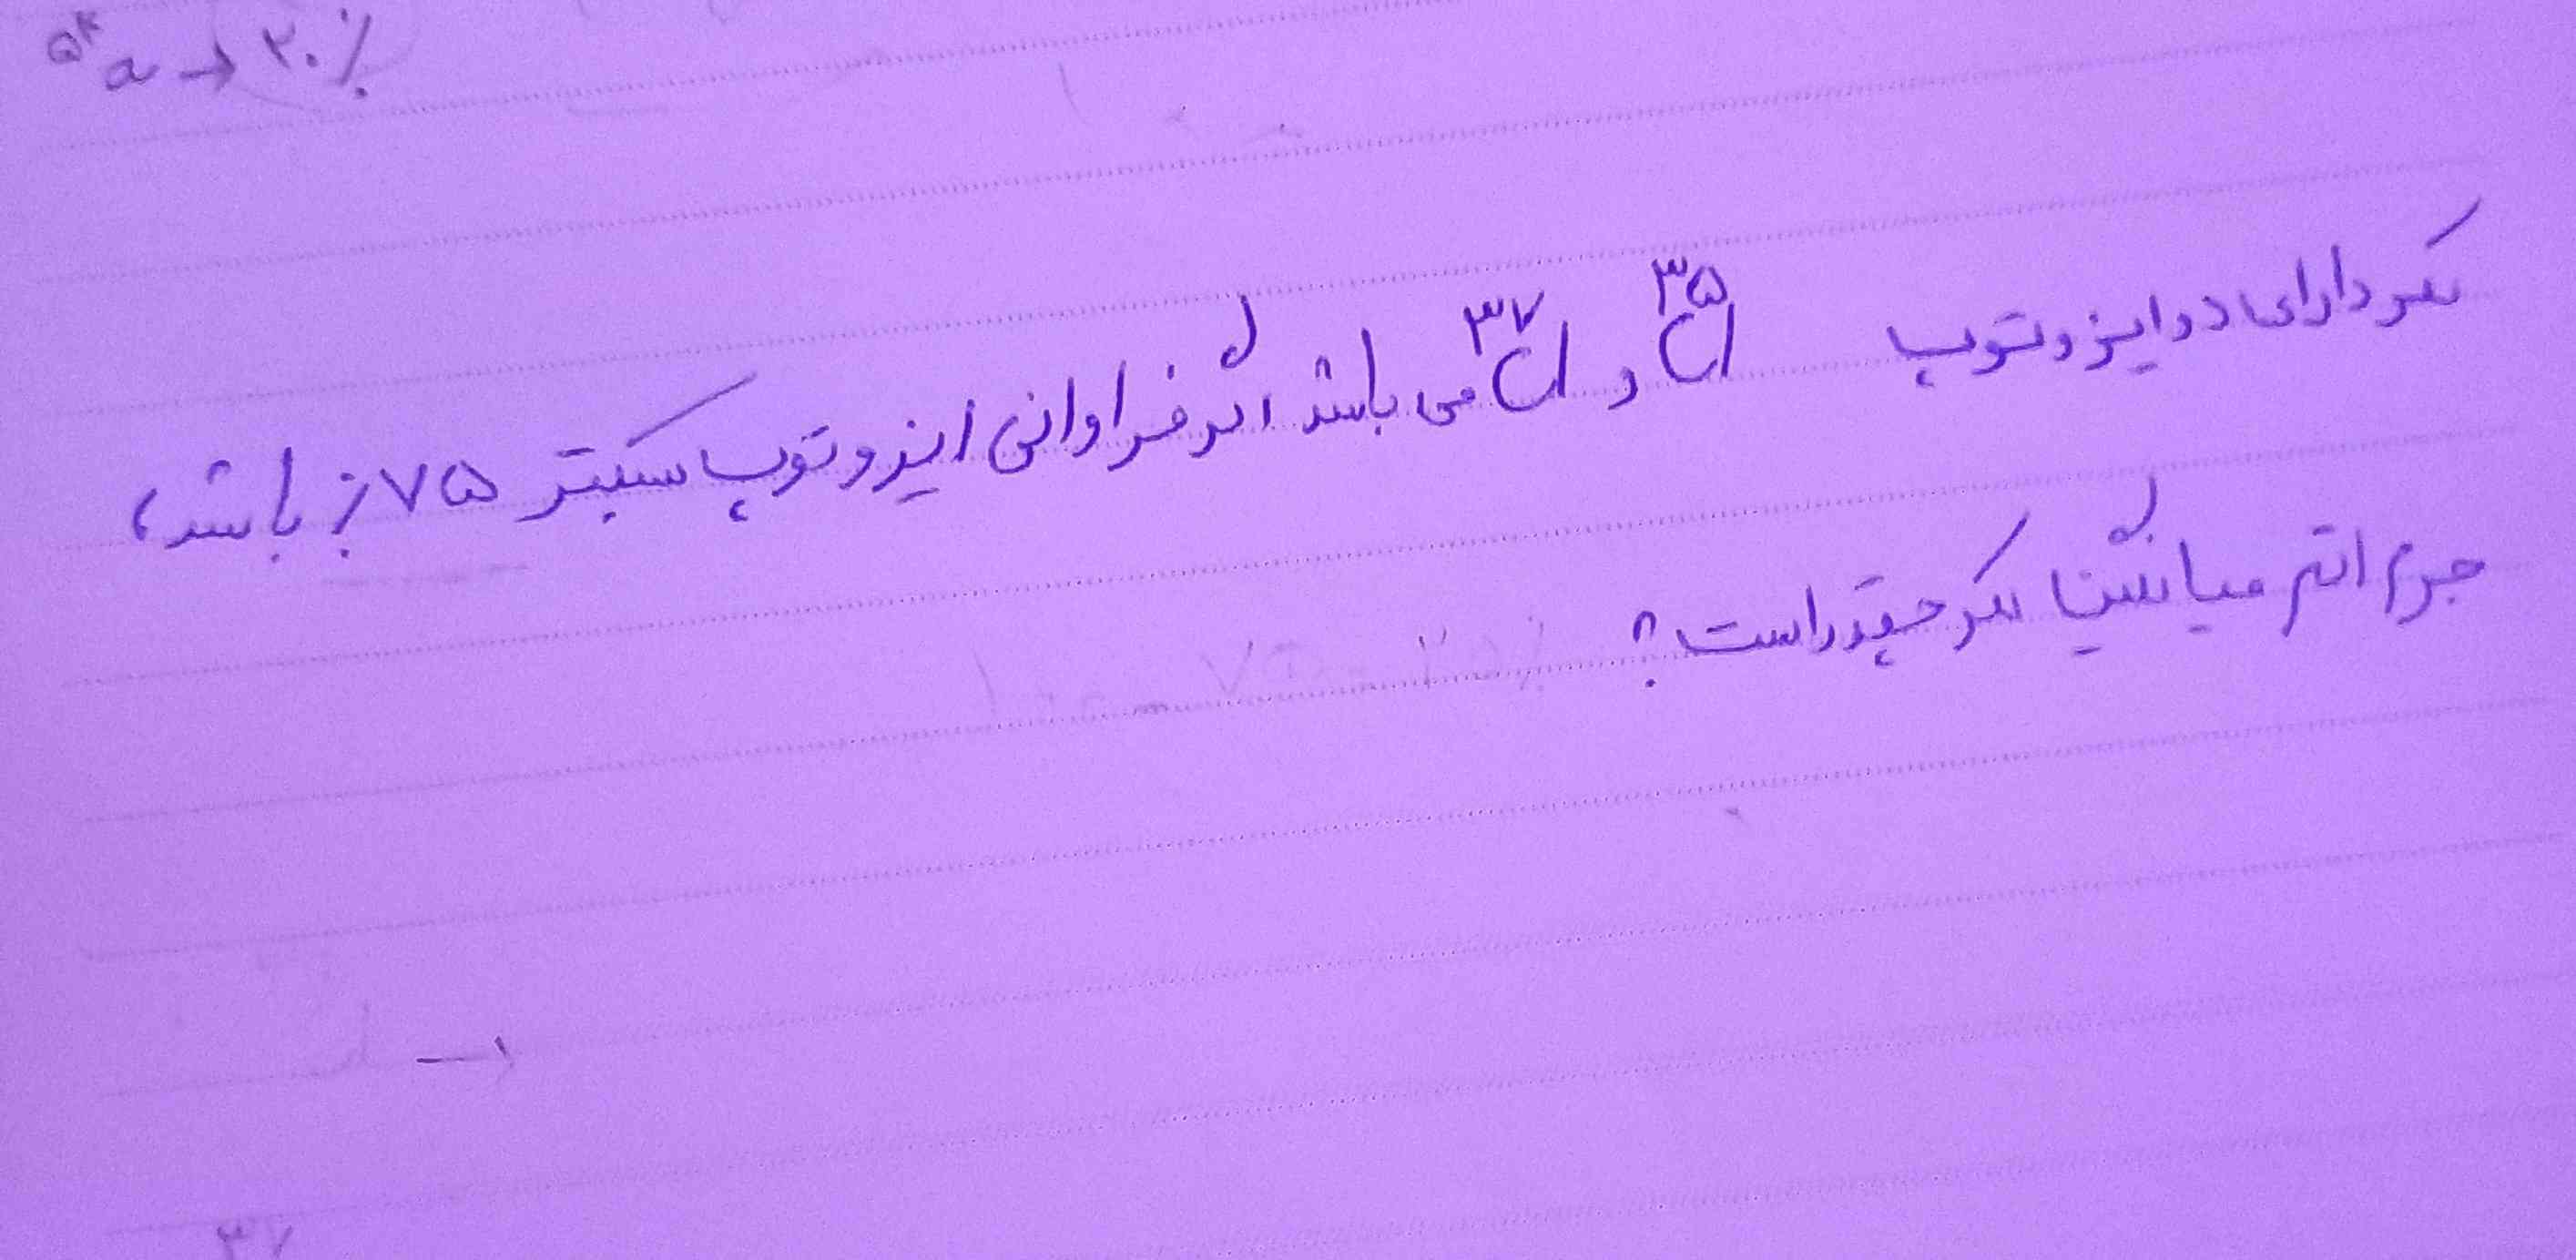 ۵۴a → ۲۰٪
کلر دارای دو ایزوتوپ ³⁵Cl و ³⁷Cl می باشد اگر فراوانی ایزوتوپ سبکتر ۷۵٪ باشد،
جرم اتمی میانگین کلر چقدر است؟
۳۷